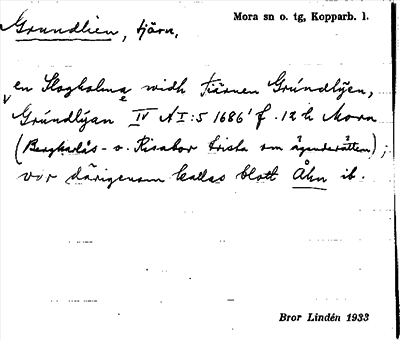 Grundlien, tjärn.
Mora sn o. tg, Kopparb. l.
en Slogholma widh tiärnen Grúndlÿen,
Grúndlÿan IV AI:5 1686' f. 12 h Mora
(Bergkarlås- o. Risabor trista om äganderätten);
vor därigenom kallas blott Åkn ib.
Bror Lindén 1933